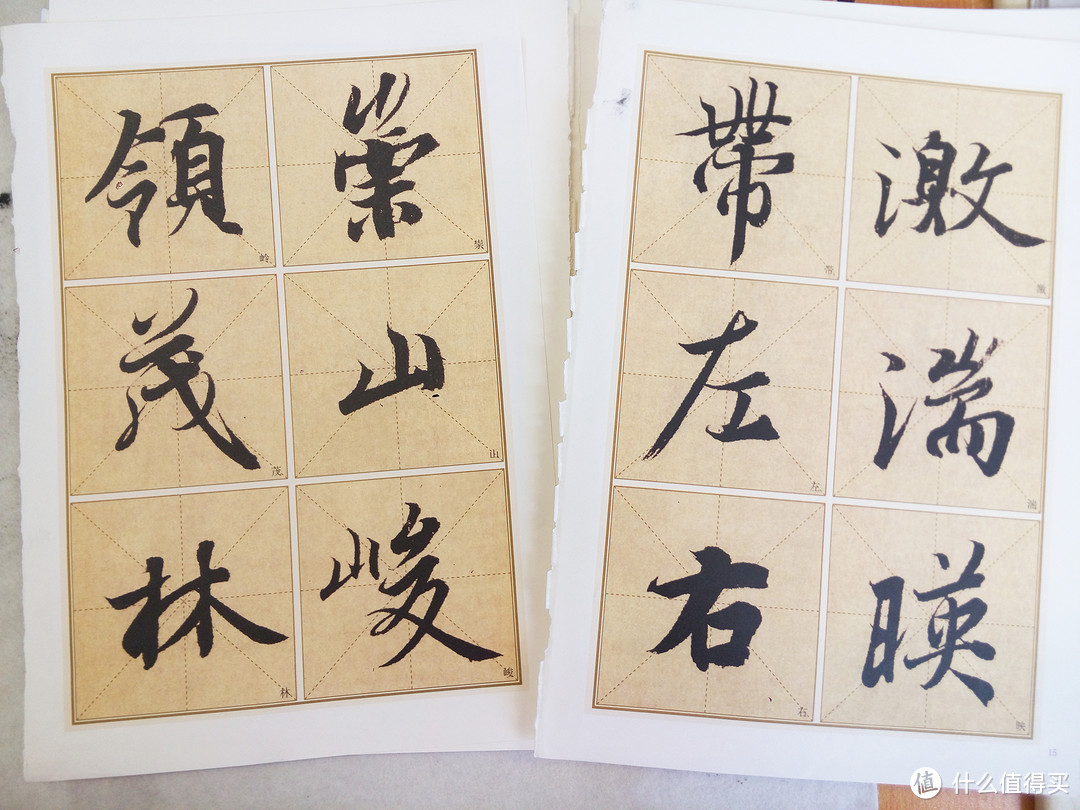 崇山峻
領茂林
激湍暎
帶左右
崇
山
峻
岭
茂
林
激
湍
映
带
左
右
15
值 什么值得买